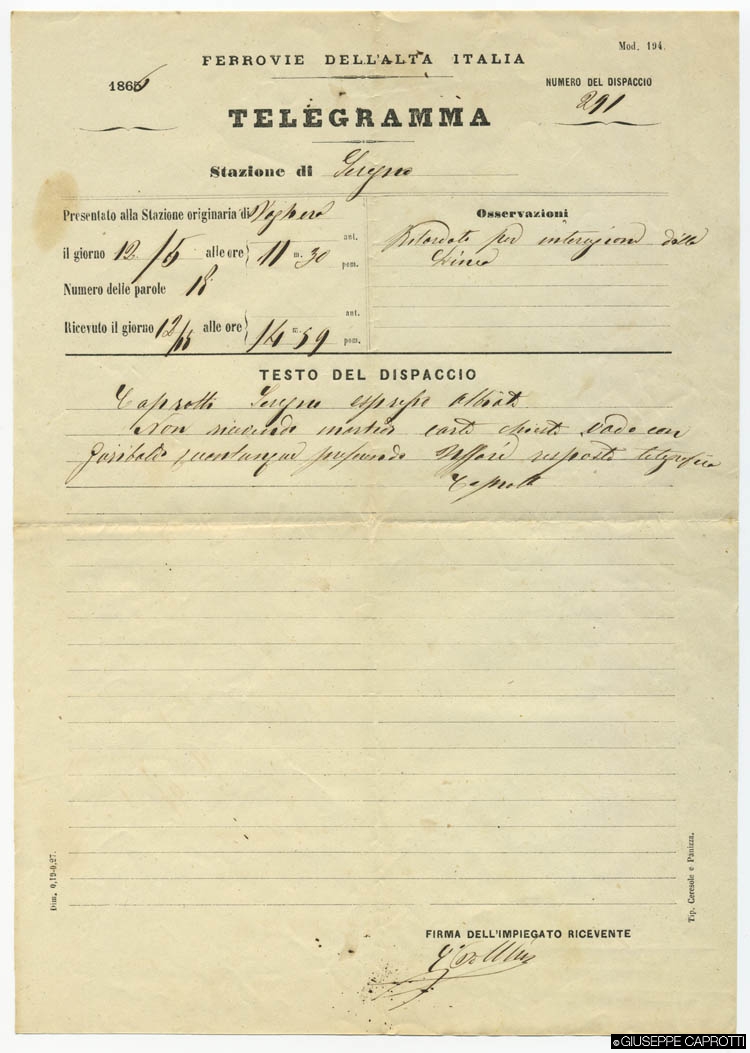 Mod. 194.
FERROVIE DELL'ALTA ITALIA
1866
NUMERO DEL DISPACCIO
291
TELEGRAMMA
Stazione di Seregno
Presentato alla Stazione originaria di Voghera
il giorno 12/5 alle ore 11 m. 30 ant. pom.
Numero delle parole 18
Ricevuto il giorno 12/5 alle ore 14 m. 59 ant. pom.
Osservazioni
Ritardato per interuzione della
Linea
TESTO DEL DISPACCIO
Caprotti Seregno espresso Albiate
Non ricevendo carte chieste Vado con
Garibaldi quantunque risposta telegrafica
Caprotti
FIRMA DELL'IMPIEGATO RICEVENTE
Dim. 0,19-0,27.
Tip. Ceresole e Panizza.
©GIUSEPPE CAPROTTI